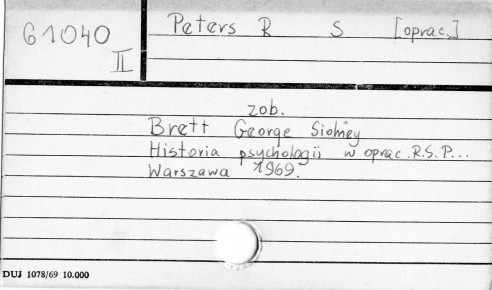 61040
II
Peters R S [oprac.]
zob.
Brett George Sidney
Historia psychologii w oprac. R.S.P...
Warszawa 1969.
DUJ 1078/69 10.000